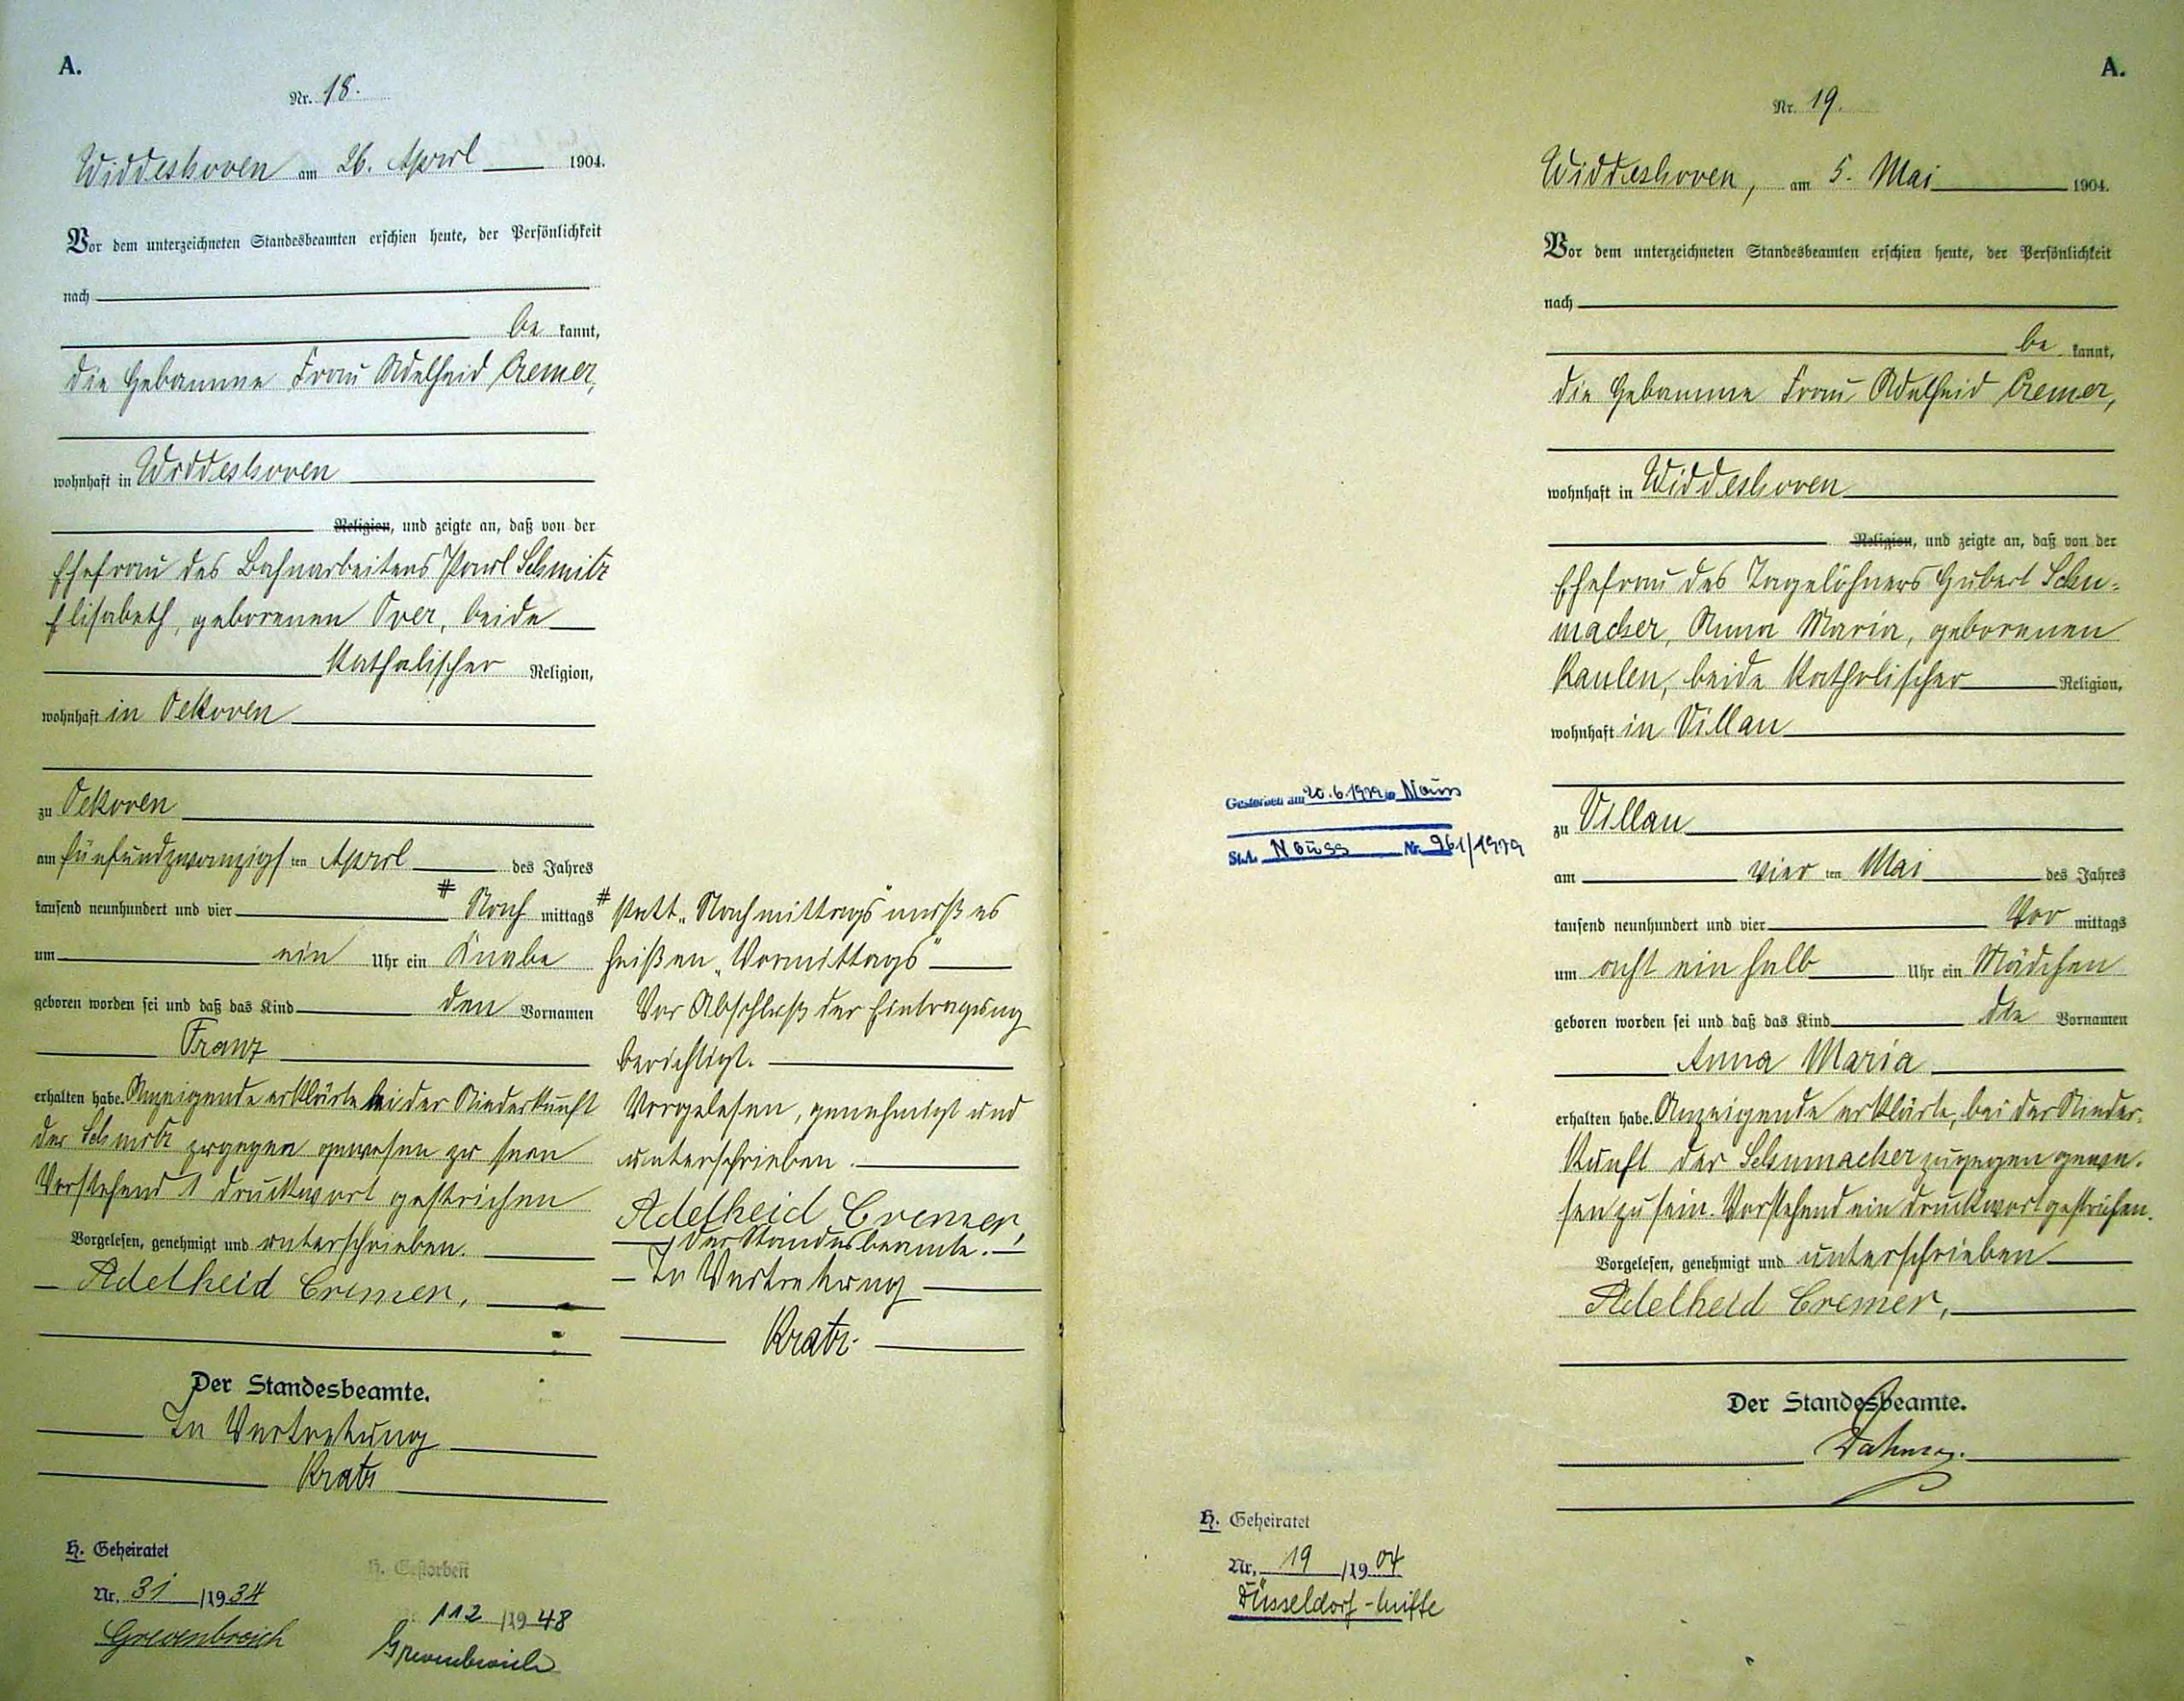 A.
Nr. 18.
Widdeshoven am 26. April 1904.
Vor dem unterzeichneten Standesbeamten erschien heute, der Persönlichkeit
nach
be kannt,
die Hebamme Frau Adelheid Cremer,
wohnhaft in Widdeshoven
Religion, und zeigte an, daß von der
Ehefrau des Bahnarbeiters Paul Schmitz
Elisabeth, geborenen Over, beide
katholischer Religion,
wohnhaft in Oekoven
zu Oekoven
am fünfundzwanzigsten April des Jahres
tausend neunhundert und vier # Nach mittags
um ein Uhr ein Knabe
geboren worden sei und daß das Kind den Vornamen
Franz
erhalten habe. Anzeigende erklärte bei der Niederkunft
der Schmitz zugegen gewesen zu sein
Vorstehend 1 Druckwort gestrichen
Vorgelesen, genehmigt und unterschrieben.
Adelheid Cremer,
Der Standesbeamte.
In Vertretung
Kratz
H. Geheiratet
Nr. 31 /1934
Grevenbroich
H. Gestorben
112 /1948
Grevenbroich
# statt „Nachmittags" muß es
heißen „Vormittags"
Vor Abschluß der Eintragung
berichtigt.
Vorgelesen, genehmigt und
unterschrieben.
Adelheid Cremer,
Der Standesbeamte.
In Vertretung
Kratz
A.
Nr. 19.
Widdeshoven, am 5. Mai 1904.
Vor dem unterzeichneten Standesbeamten erschien heute, der Persönlichkeit
nach
be kannt,
die Hebamme Frau Adelheid Cremer,
wohnhaft in Widdeshoven
Religion, und zeigte an, daß von der
Ehefrau des Tagelöhners Hubert Schu-
macher, Anna Maria, geborenen
Kaulen, beide katholischer Religion,
wohnhaft in Villau
zu Villau
am vier ten Mai des Jahres
tausend neunhundert und vier Vor mittags
um acht ein halb Uhr ein Mädchen
geboren worden sei und daß das Kind die Vornamen
Anna Maria
erhalten habe. Anzeigende erklärte, bei der Nieder-
kunft der Schumacher zugegen gewe-
sen zu sein. Vorstehend ein Druckwort gestrichen.
Vorgelesen, genehmigt und unterschrieben
Adelheid Cremer,
Der Standesbeamte.
Gestorben am 20.6.1979 in Neuss
St.A. Neuss Nr. 961/1979
H. Geheiratet
Nr. 19 /1904
Düsseldorf-Mitte